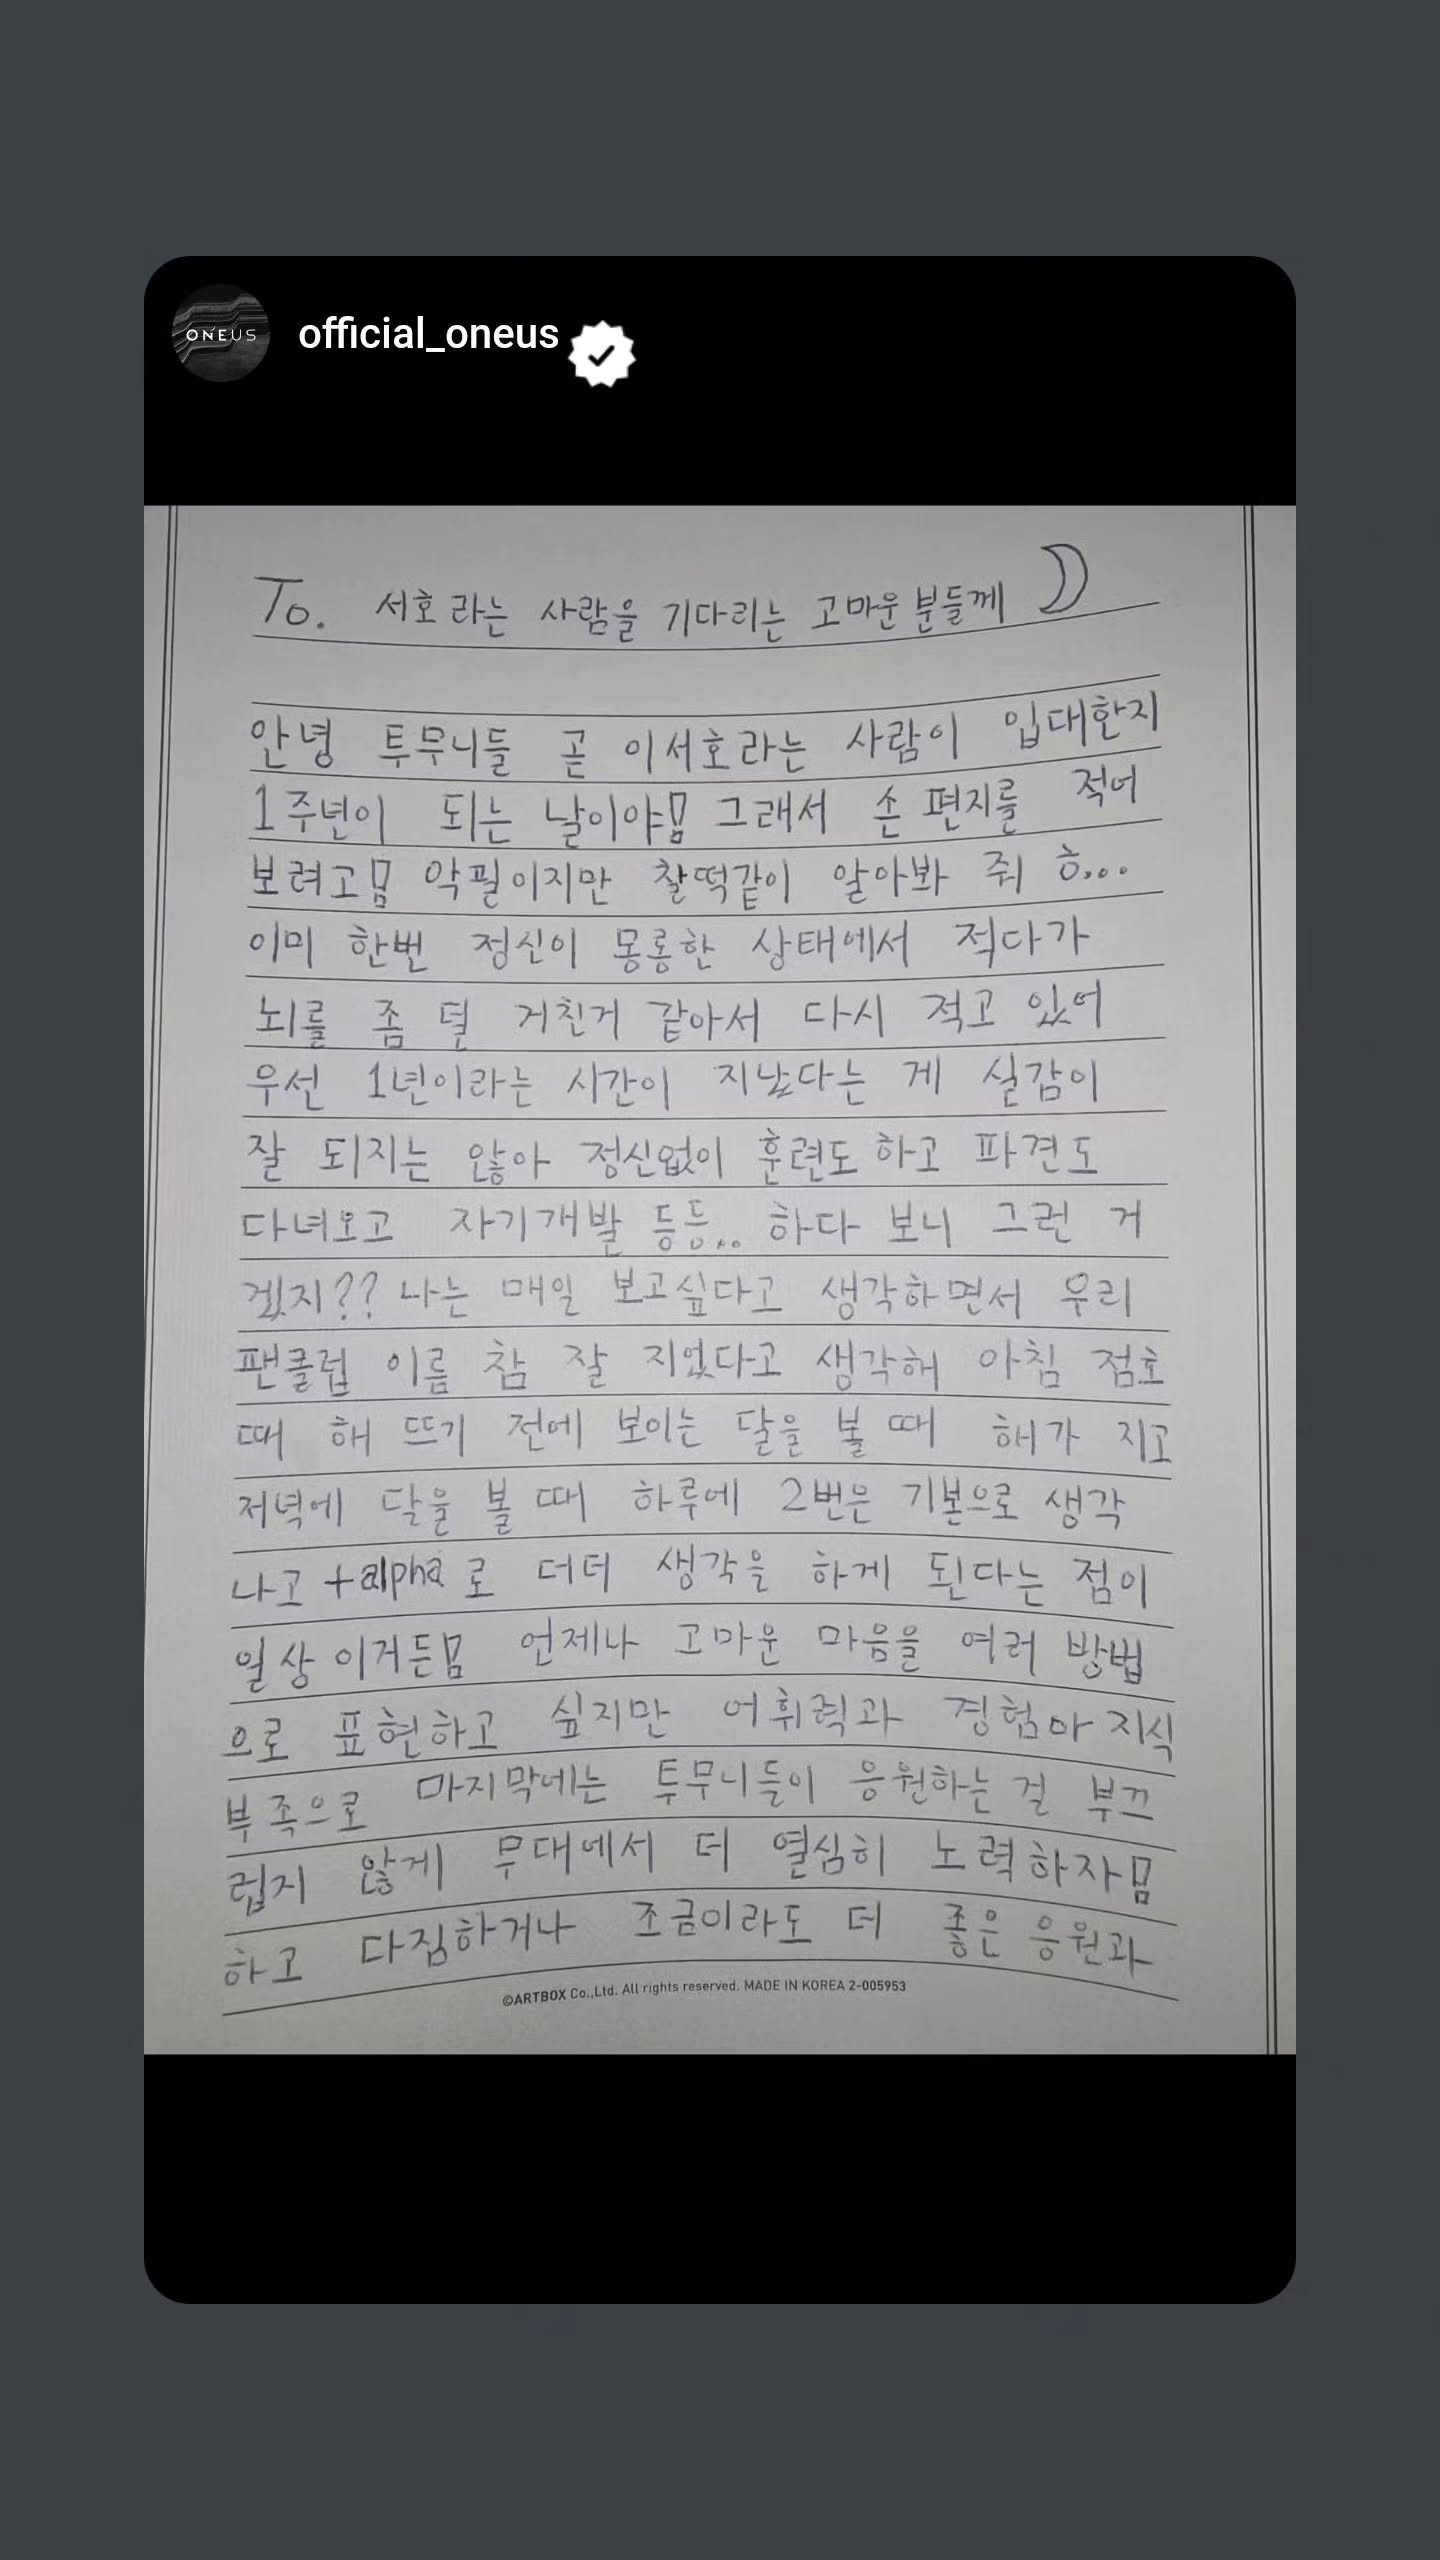 ONEUS
official_oneus
To. 서호라는 사람을 기다리는 고마운 분들께
안녕 투무니들 곧 이서호라는 사람이 입대한지
1주년이 되는 날이야묨 그래서 손 편지를 적어
보려고묨 악필이지만 찰떡같이 알아봐 줘 ㅎ...
이미 한번 정신이 몽롱한 상태에서 적다가
뇌를 좀 덜 거친거 같아서 다시 적고 있어
우선 1년이라는 시간이 지났다는 게 실감이
잘 되지는 않아 정신없이 훈련도 하고 파견도
다녀오고 자기개발 등등... 하다 보니 그런 거
겠지?? 나는 매일 보고싶다고 생각하면서 우리
팬클럽 이름 참 잘 지었다고 생각해 아침 점호
때 해 뜨기 전에 보이는 달을 볼 때 해가 지고
저녁에 달을 볼 때 하루에 2번은 기본으로 생각
나고 +alpha로 더더 생각을 하게 된다는 점이
일상이거든묨 언제나 고마운 마음을 여러 방법
으로 표현하고 싶지만 어휘력과 경험아 지식
부족으로 마지막에는 투무니들이 응원하는 걸 부끄
럽지 않게 무대에서 더 열심히 노력하자묨
하고 다짐하거나 조금이라도 더 좋은 응원과
©ARTBOX Co.,Ltd. All rights reserved. MADE IN KOREA 2-005953